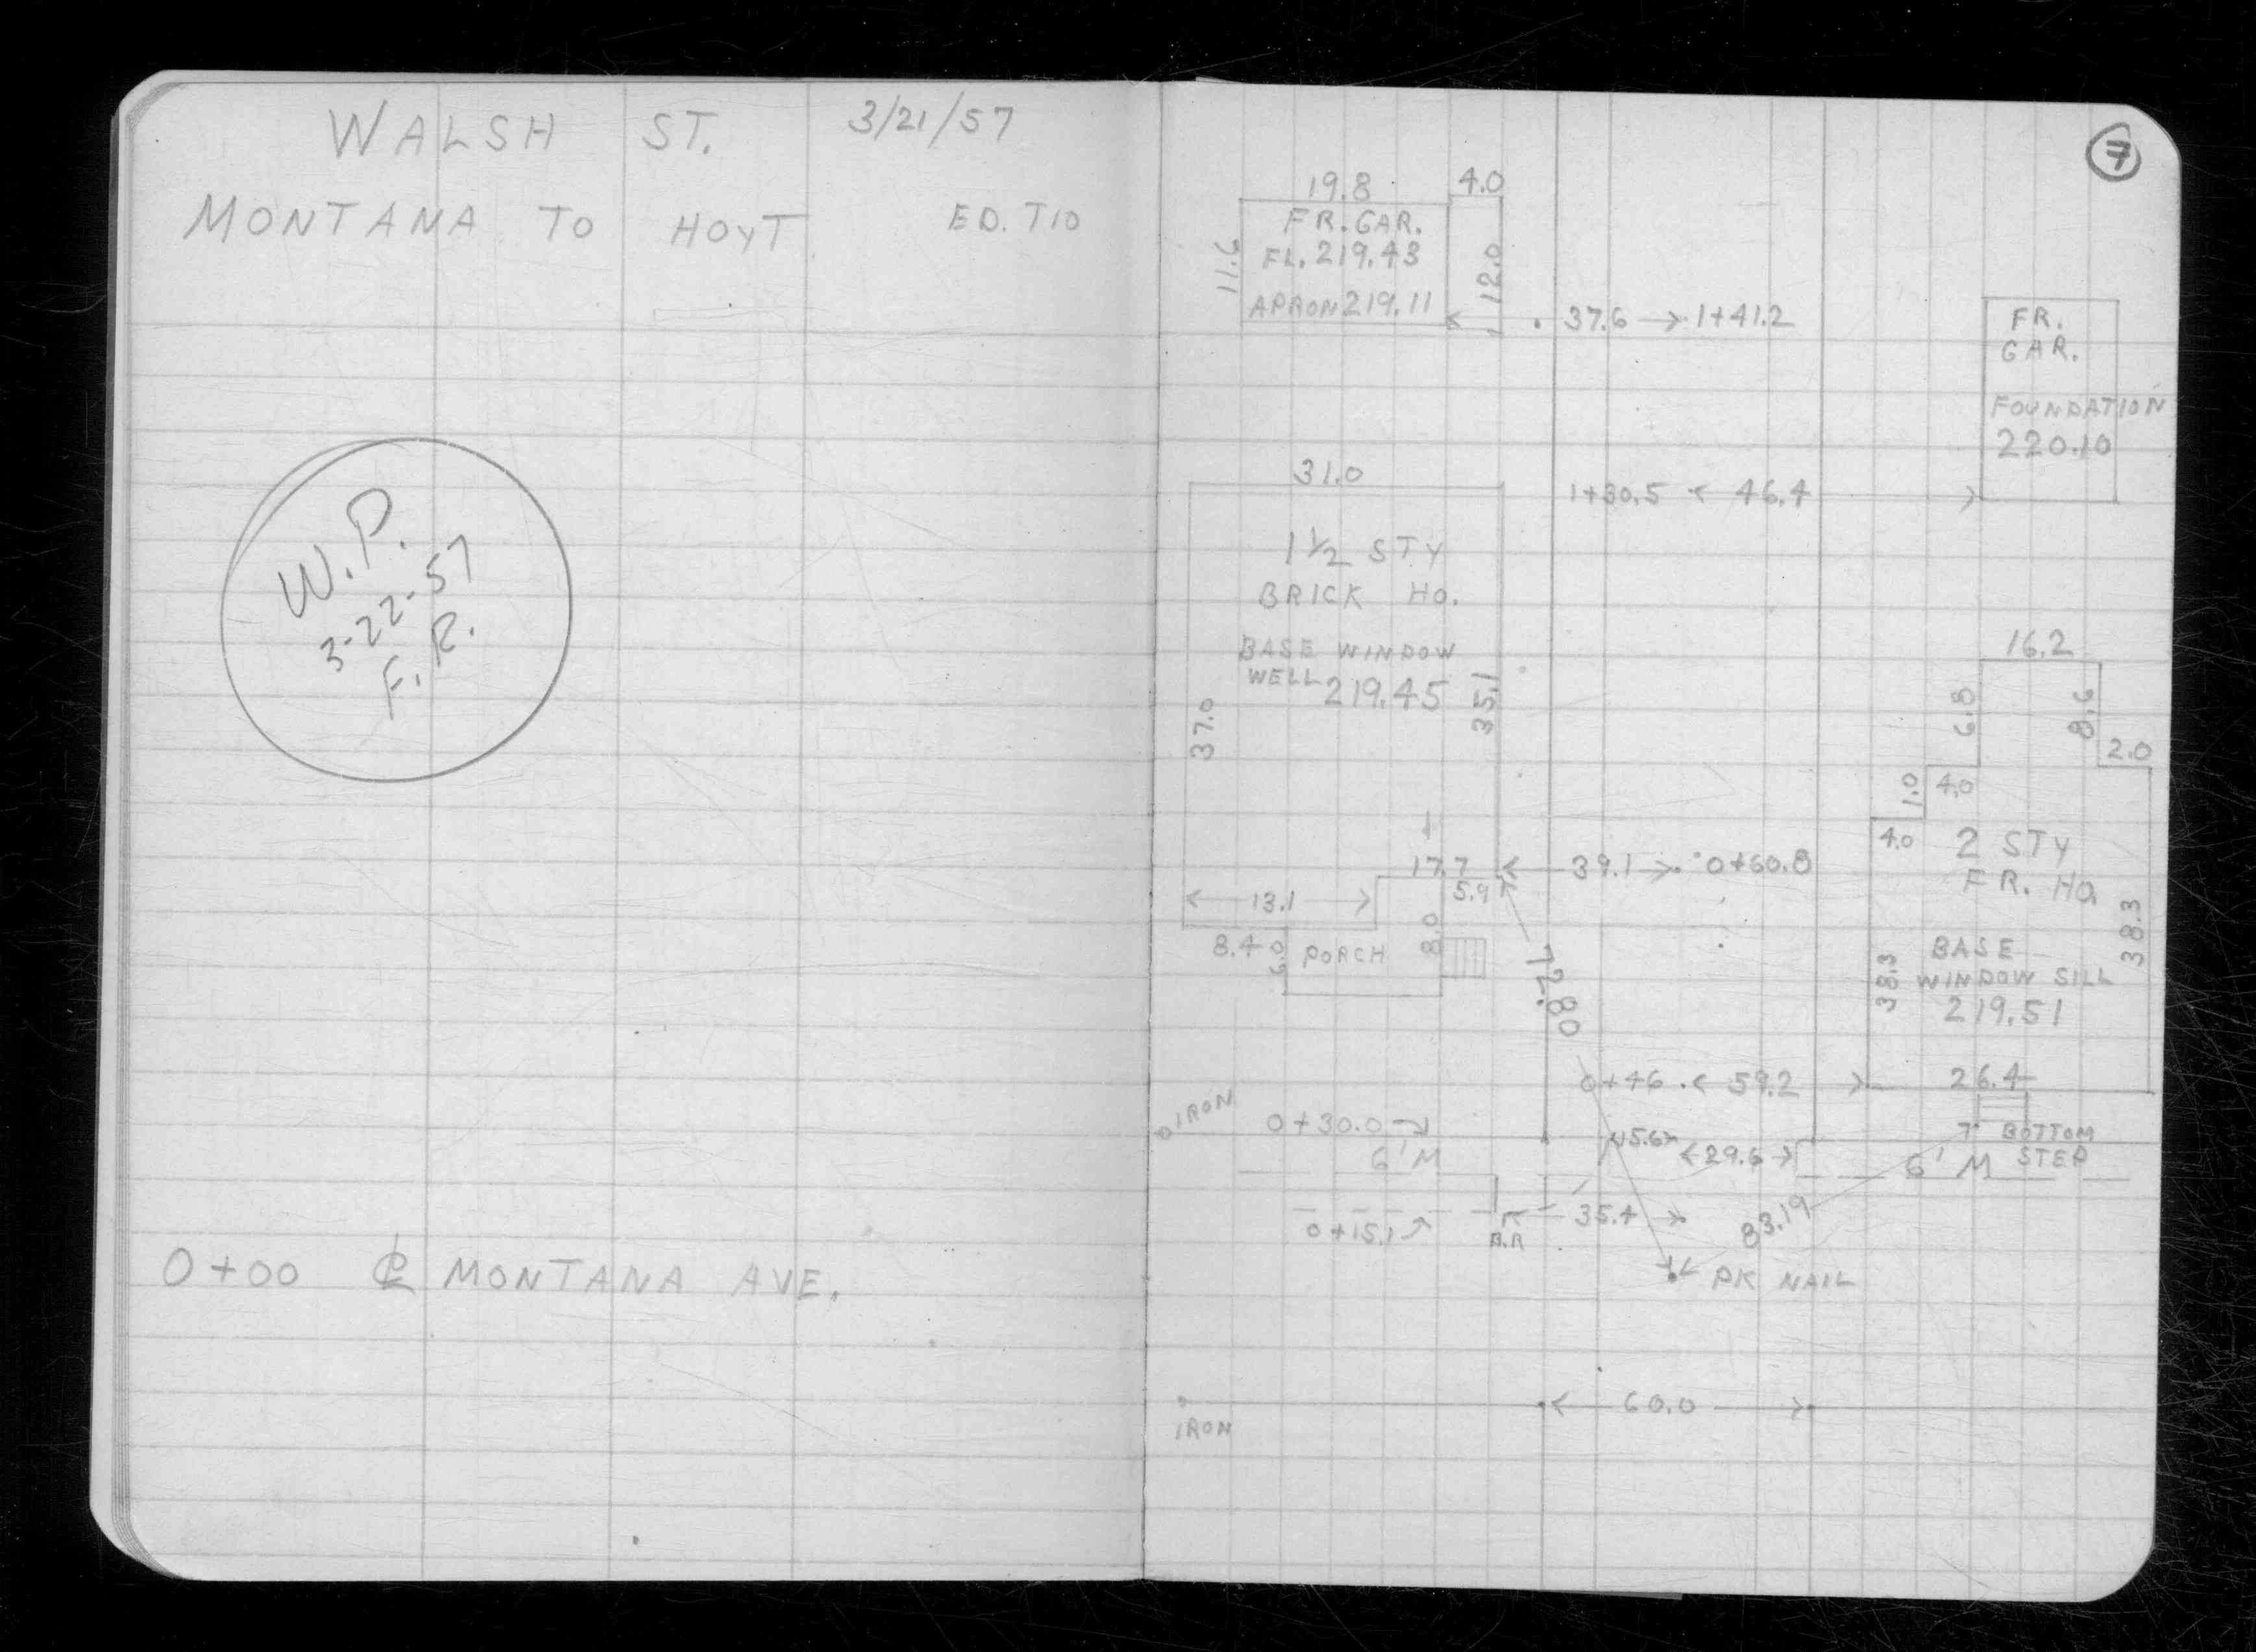 WALSH ST. 3/21/57
MONTANA TO HOYT ED. T10
W.P.
3-22-57
F.R.
0+00 ℄ MONTANA AVE.
7
19.8 4.0
FR. GAR.
FL. 219.43
APRON 219.11
11.6
12.0
37.6 1+41.2
FR.
GAR.
FOUNDATION
220.10
31.0
1+30.5 46.4
1½ STY
BRICK HO.
BASE WINDOW
WELL 219.45
37.0
35.1
16.2
6.8
8.6
2.0
1.0
4.0
4.0
2 STY
FR. HO.
38.3
38.3
BASE
WINDOW SILL
219.51
26.4
17.7 39.1 0+60.8
5.9
13.1
8.4
6.0
PORCH
8.0
72.80
0+46 59.2
IRON
0+30.0
6' M
15.6
29.6
BOTTOM
STEP
6' M
0+15.1
B.R
35.4
83.19
PK NAIL
60.0
IRON